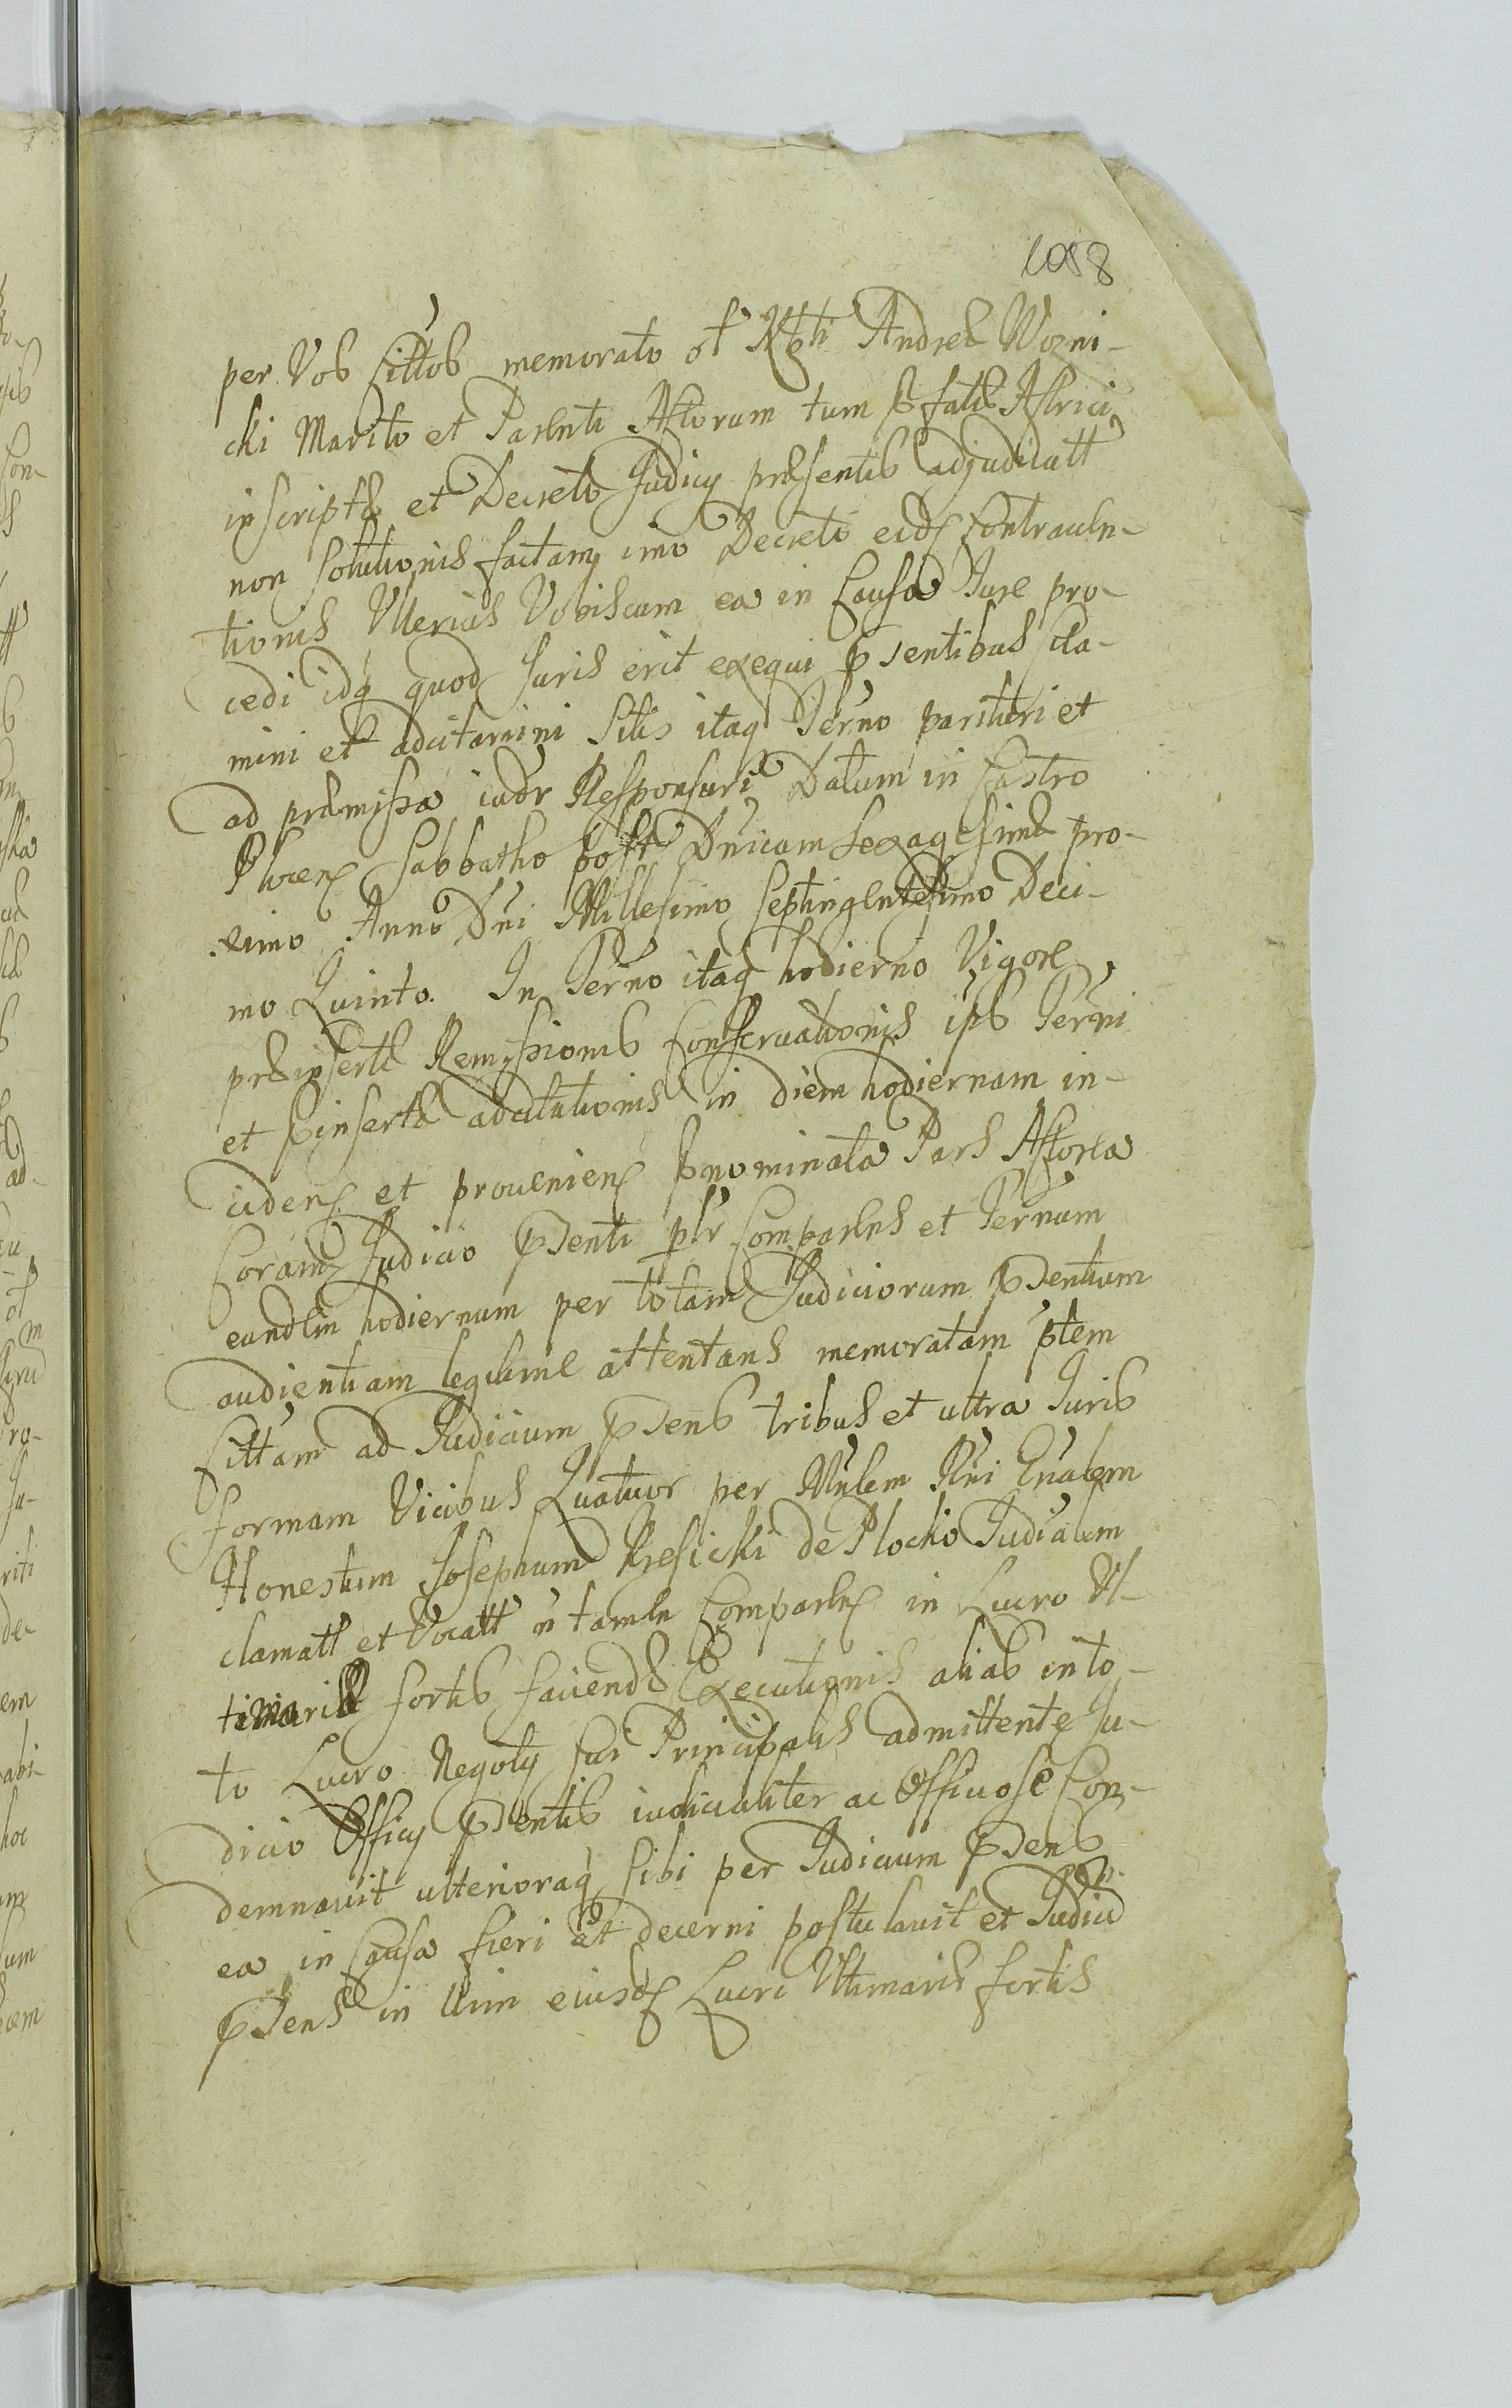 1058
per Vos Cittos memorato ol Nbti Andreæ Wozni-
cki Marito et Parenti Actorum tum p fatæ Actrici
inscriptæ et Decreto Judicij præsentis adjudicatt
non solutionis factam imo Decreti eid Contraven-
tionis Ulterius Vobiscum ea in Causa Jure pro-
cedi idq quod Juris erit exequi psentibus cita-
mini et adcitamini Sitis itaq Terno parituri et
ad præmissa iudr Responsuri Datum in Castro
Plocen Sabbatho post Dnicam Sexagesimæ pro-
ximo Anno Dni Millesimo Septingentesimo Deci-
mo Quinto. In Terno itaq hodierno Vigore
præinsertæ Remissionis Conservationis ips Terni
et pinsertæ adcitationis in diem hodiernam in-
ciden et provenien pnominata Pars Actorea
Coram Judicio psenti plr Comparens et Ternum
eundem hodiernum per totam Judiciorum psentium
audientiam legitime attentans memoratam ptem
Cittam ad Judicium psens tribus et ultra Juris
formam Vicibus Quatuor per Mnlem Rni Gnalem
Honestum Josephum Kresicki de Plocko Judicialem
clamatt et Vocatt n tamen Comparen in Lucro Ul-
timariæ sortis faciendæ Executionis alias in to-
to Lucro Negotij sui Principalis admittente Ju-
dicio Officij psentis iudicialiter ac Officiose Con-
demnavit ulterioraq sibi per Judicium psens
ea in Causa fieri et decerni postulavit et Judiciu
psens in Vim eiusd Lucri Ultimariæ sortis